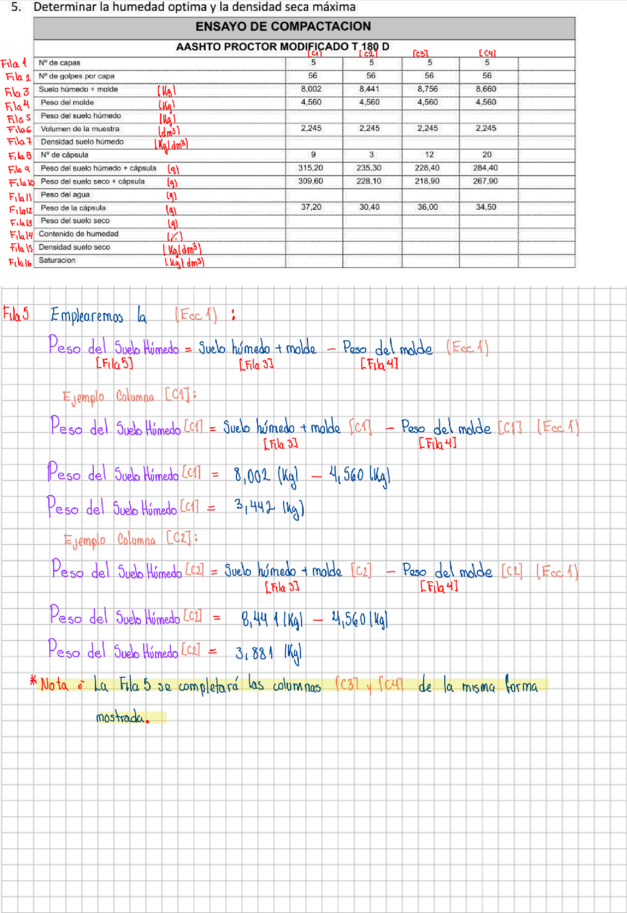 5. Determinar la humedad optima y la densidad seca máxima
ENSAYO DE COMPACTACION
AASHTO PROCTOR MODIFICADO T 180 D
[C1] [C2] [C3] [C4]
Fila 1 Nº de capas 5 5 5 5
Fila 2 Nº de golpes por capa 56 56 56 56
Fila 3 Suelo húmedo + molde (Kg) 8,002 8,441 8,756 8,660
Fila 4 Peso del molde (Kg) 4,560 4,560 4,560 4,560
Fila 5 Peso del suelo húmedo (Kg)
Fila 6 Volumen de la muestra (dm³) 2,245 2,245 2,245 2.245
Fila 7 Densidad suelo húmedo (Kg/dm³)
Fila 8 Nº de cápsula 9 3 12 20
Fila 9 Peso del suelo húmedo + cápsula (g) 315,20 235,30 228,40 284,40
Fila 10 Peso del suelo seco + cápsula (g) 309,60 228,10 218,90 267,90
Fila 11 Peso del agua (g)
Fila 12 Peso de la cápsula (g) 37,20 30,40 36,00 34,50
Fila 13 Peso del suelo seco (g)
Fila 14 Contenido de humedad (%)
Fila 15 Densidad suelo seco (Kg/dm³)
Fila 16 Saturacion (Kg/dm³)
Fila 5 Emplearemos la (Ecc 1) :
Peso del Suelo Húmedo = Suelo húmedo + molde - Peso del molde (Ecc 1)
[Fila 5] [Fila 3] [Fila 4]
Ejemplo Columna [C1]:
Peso del Suelo Húmedo [C1] = Suelo húmedo + molde [C1] - Peso del molde [C1] (Ecc 1)
[Fila 3] [Fila 4]
Peso del Suelo Húmedo [C1] = 8,002 (Kg) - 4,560 (Kg)
Peso del Suelo Húmedo [C1] = 3,442 (Kg)
Ejemplo Columna [C2]:
Peso del Suelo Húmedo [C2] = Suelo húmedo + molde [C2] - Peso del molde [C2] (Ecc 1)
[Fila 3] [Fila 4]
Peso del Suelo Húmedo [C2] = 8,441 (Kg) - 4,560 (Kg)
Peso del Suelo Húmedo [C2] = 3,881 (Kg)
* Nota : La Fila 5 se completará las columnas [C3] y [C4] de la misma forma
mostrada.